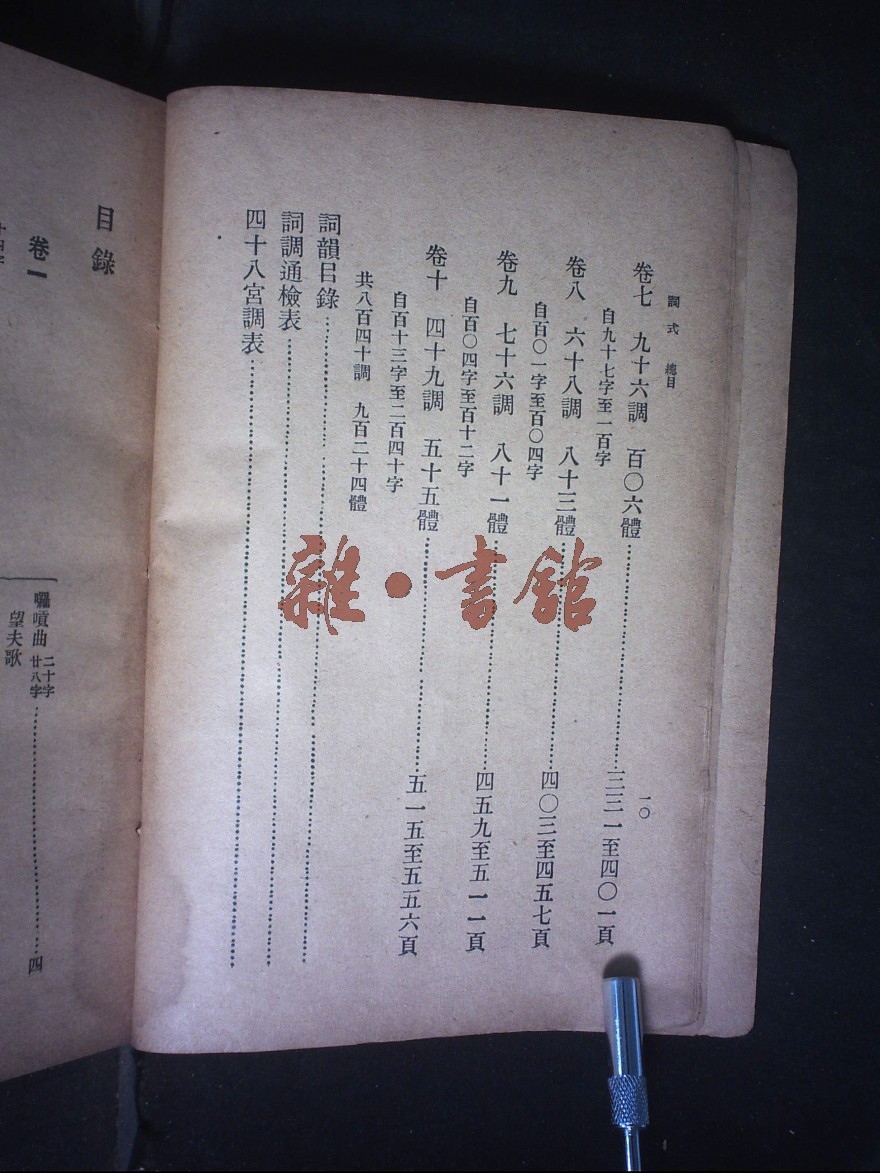 詞式 總目
一〇
卷七 九十六調 百〇六體……三三一至四〇一頁
自九十七字至一百字
卷八 六十八調 八十三體……四〇三至四五七頁
自百〇一字至百〇四字
卷九 七十六調 八十一體……四五九至五一一頁
自百〇四字至百十二字
卷十 四十九調 五十五體……五一五至五五六頁
自百十三字至二百四十字
共八百四十調 九百二十四體
詞韻目錄……
詞調通檢表……
四十八宮調表……
雜·書館
目錄
卷一
囉嗊曲 二十字 廿八字……四
望夫歌